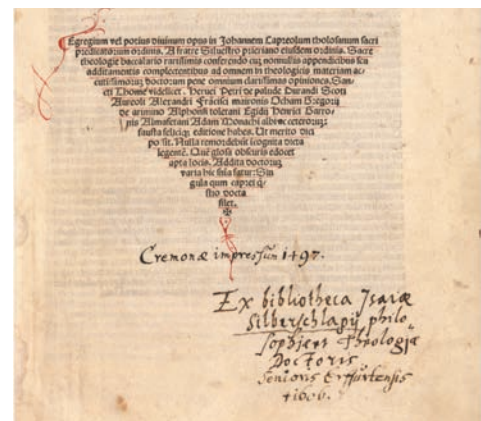 Egregium vel potius divinum opus in Johannem Capreolum tholosanum sacri
predicatorum ordinis. A fratre Silvestro prieriano eiusdem ordinis. Sacre
theologie baccalario rarissimis conferendo cuȝ nonnullis appendicibus seu
additamentis complectentibus ad omnem in theologicis materiam ac-
cutissimoruȝ doctorum pene omnium clarissimas opiniones. San-
cti Thome videlicet. Hervei Petri de palude Durandi Scoti
Aureoli Alexandri Frācisci maironis Ocham Gregorij
de arimino Alphonsi tolerani Egidij Henrici Barro-
nis Almasetani Adam Monachi albi ⁊ ceteroruȝ:
fausta feliciqȝ editione habes. Ut merito dici
po sit. Nulla remordebūt īcognita dicta
legentē. Quē glosa obscuris edocet
apta locis. Addita doctoruȝ
varia hic simul fatur: Sin
gula qum capreo
docta
silet.
Cremonæ impressum 1497.
Ex bibliotheca Isaiæ
Silberschlagij philo
sophiæ et Theologiæ
Doctoris
Senioris Erffurtensis
1606.